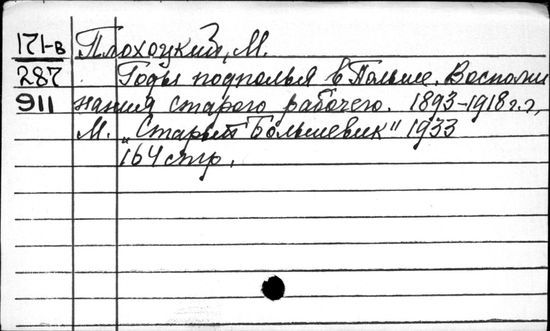 171-в Плохоцкий, М.
287 Годы подполья в Польше. Воспоми
911 нания старого рабочего. 1893-1918 г.г,
М. „Старый Большевик" 1933
164 стр.